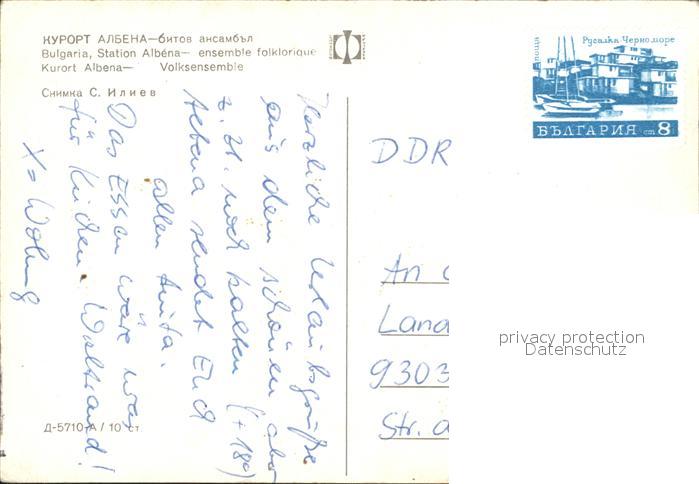 КУРОРТ АЛБЕНА—битов ансамбъл
Bulgaria, Station Albéna— ensemble folklorique
Kurort Albena— Volksensemble
Снимка С. Илиев
Herzliche Urlaubsgrüße
aus dem schönen aber
z. Zt. noch kalten (+18°)
Albena sendet Euch
allen Anita.
Das Essen wäre was
für Küchen. Waltraud!
X = Wohng
Д-5710-А / 10 ст.
поща
Русалка Черноморе
БЪЛГАРИЯ ст 8
DDR
An
Land
9303
Str. d
privacy protection
Datenschutz